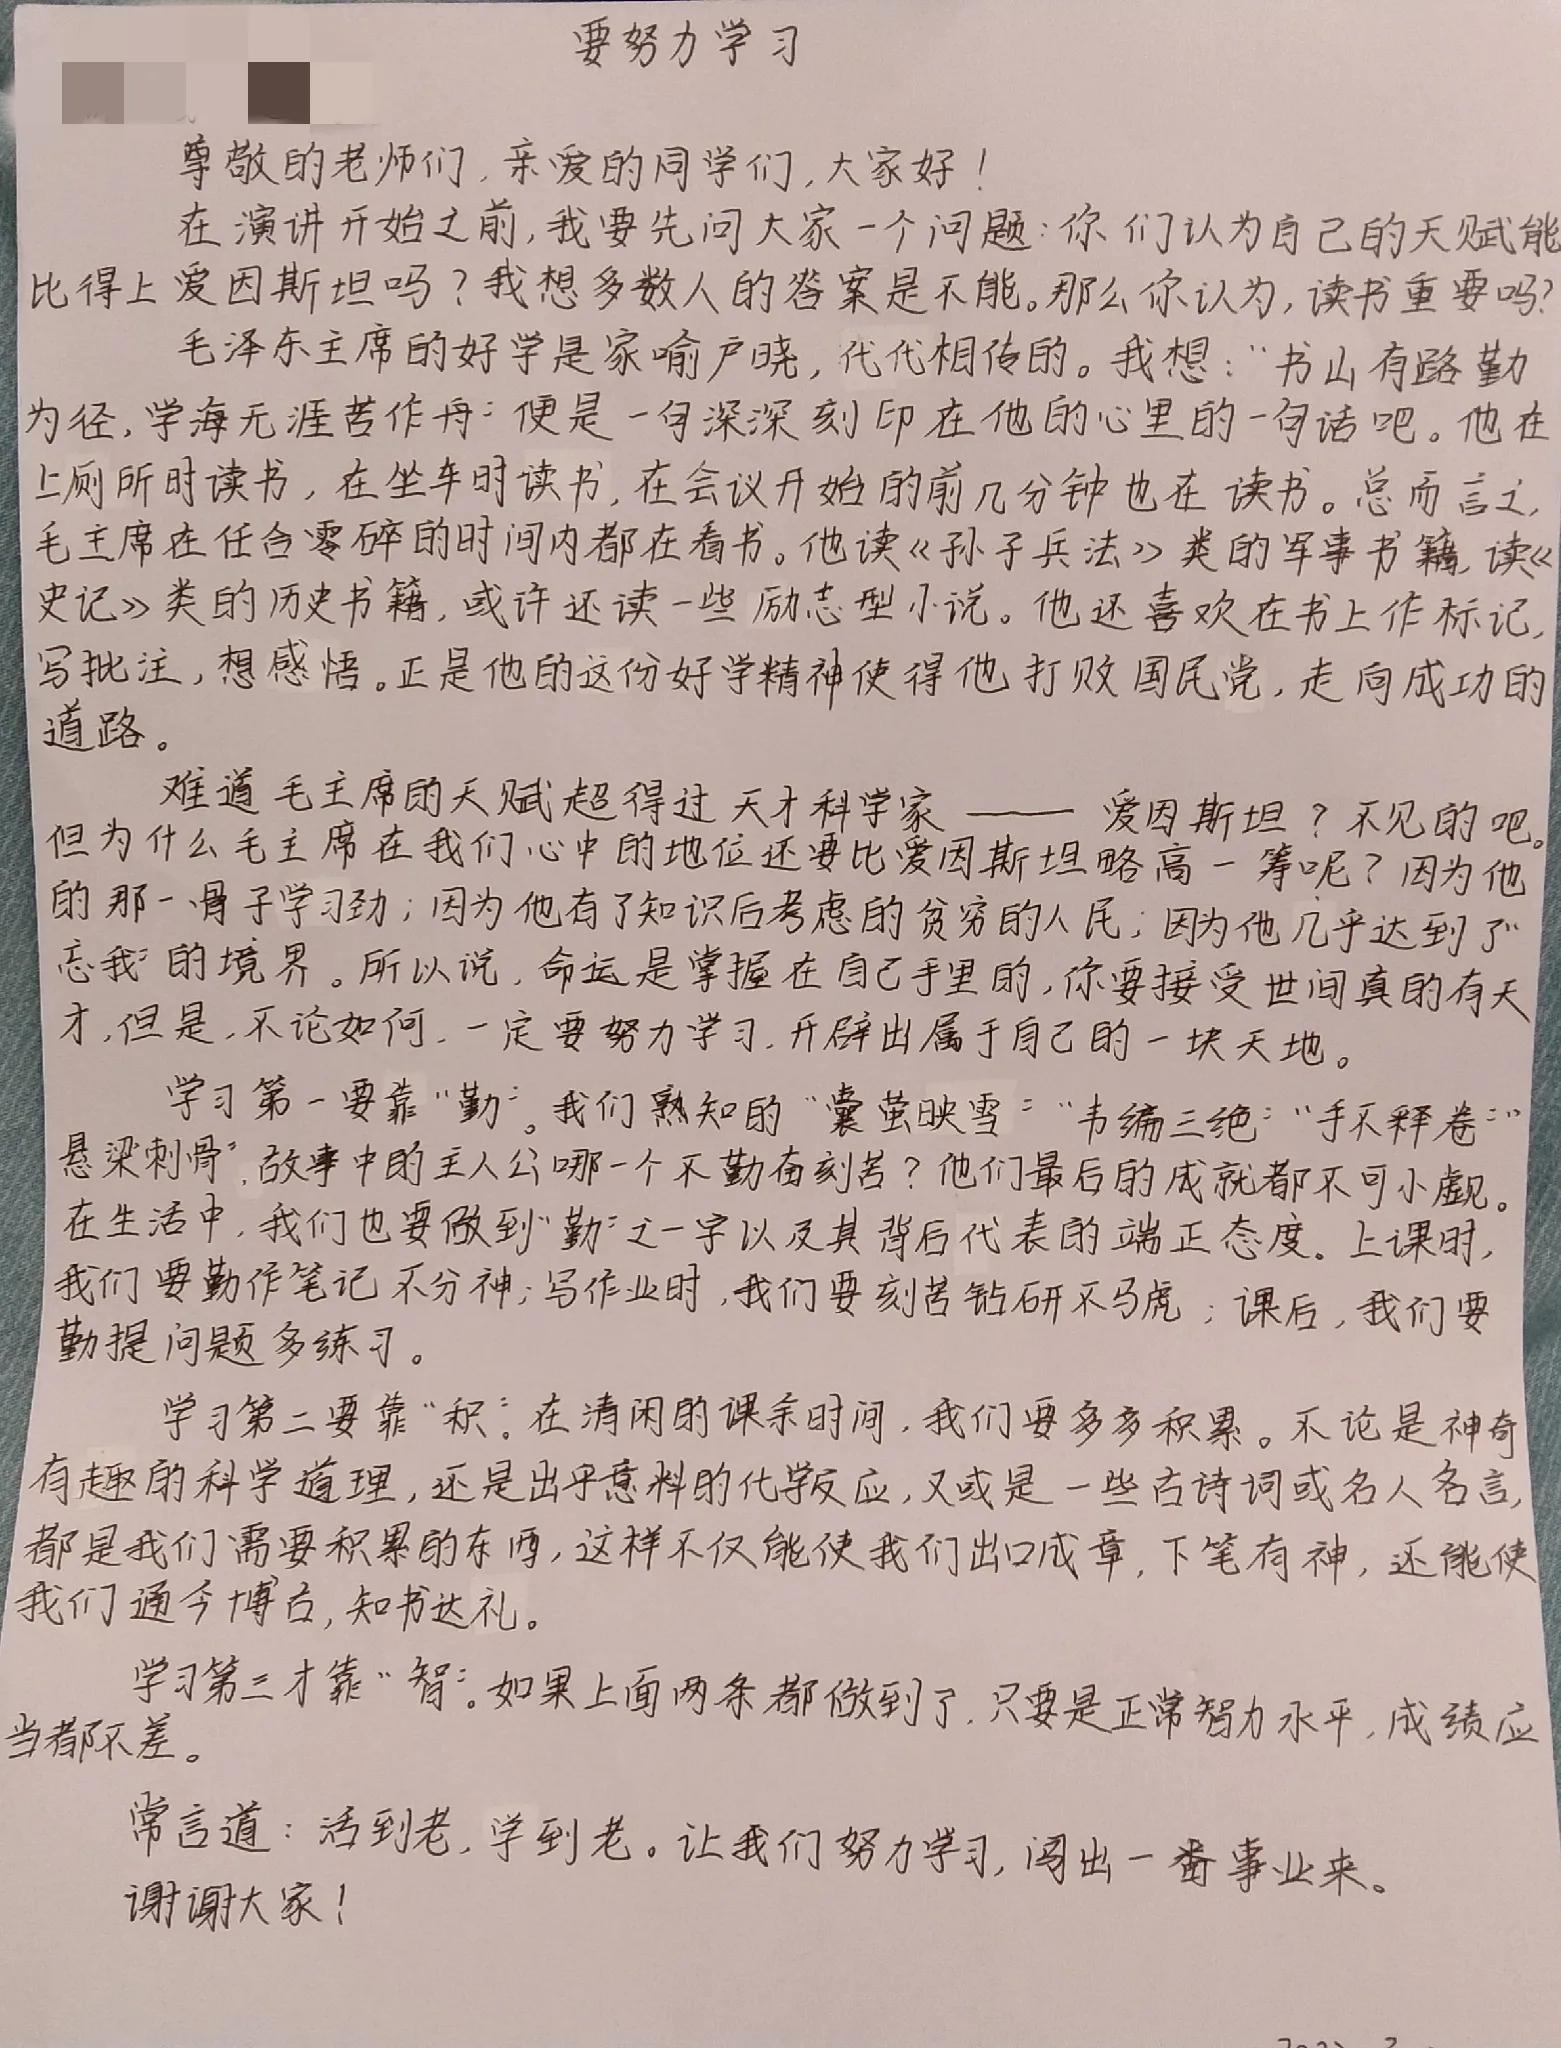 要努力学习
尊敬的老师们,亲爱的同学们,大家好!
在演讲开始之前,我要先问大家一个问题:你们认为自己的天赋能
比得上爱因斯坦吗?我想多数人的答案是不能。那么你认为,读书重要吗?
毛泽东主席的好学是家喻户晓,代代相传的。我想:“书山有路勤
为径,学海无涯苦作舟”便是一句深深刻印在他的心里的一句话吧。他在
上厕所时读书,在坐车时读书,在会议开始的前几分钟也在读书。总而言之,
毛主席在任合零碎的时间内都在看书。他读《孙子兵法》类的军事书籍,读《
史记》类的历史书籍,或许还读一些励志型小说。他还喜欢在书上作标记,
写批注,想感悟。正是他的这份好学精神使得他打败国民党,走向成功的
道路。
难道毛主席的天赋超得过天才科学家——爱因斯坦?不见的吧。
但为什么毛主席在我们心中的地位还要比爱因斯坦略高一筹呢?因为他
的那一骨子学习劲;因为他有了知识后考虑的贫穷的人民;因为他几乎达到了“
忘我”的境界。所以说,命运是掌握在自己手里的,你要接受世间真的有天
才,但是,不论如何,一定要努力学习,开辟出属于自己的一块天地。
学习第一要靠“勤”。我们熟知的“囊萤映雪”“韦编三绝”“手不释卷”“
悬梁刺骨”,故事中的主人公哪一个不勤奋刻苦?他们最后的成就都不可小觑。
在生活中,我们也要做到“勤”之一字以及其背后代表的端正态度。上课时,
我们要勤作笔记不分神;写作业时,我们要刻苦钻研不马虎;课后,我们要
勤提问题多练习。
学习第二要靠“积”。在清闲的课余时间,我们要多多积累。不论是神奇
有趣的科学道理,还是出乎意料的化学反应,又或是一些古诗词或名人名言,
都是我们需要积累的东西,这样不仅能使我们出口成章,下笔有神,还能使
我们通今博古,知书达礼。
学习第三才靠“智”。如果上面两条都做到了,只要是正常智力水平,成绩应
当都不差。
常言道:活到老,学到老。让我们努力学习,闯出一番事业来。
谢谢大家!